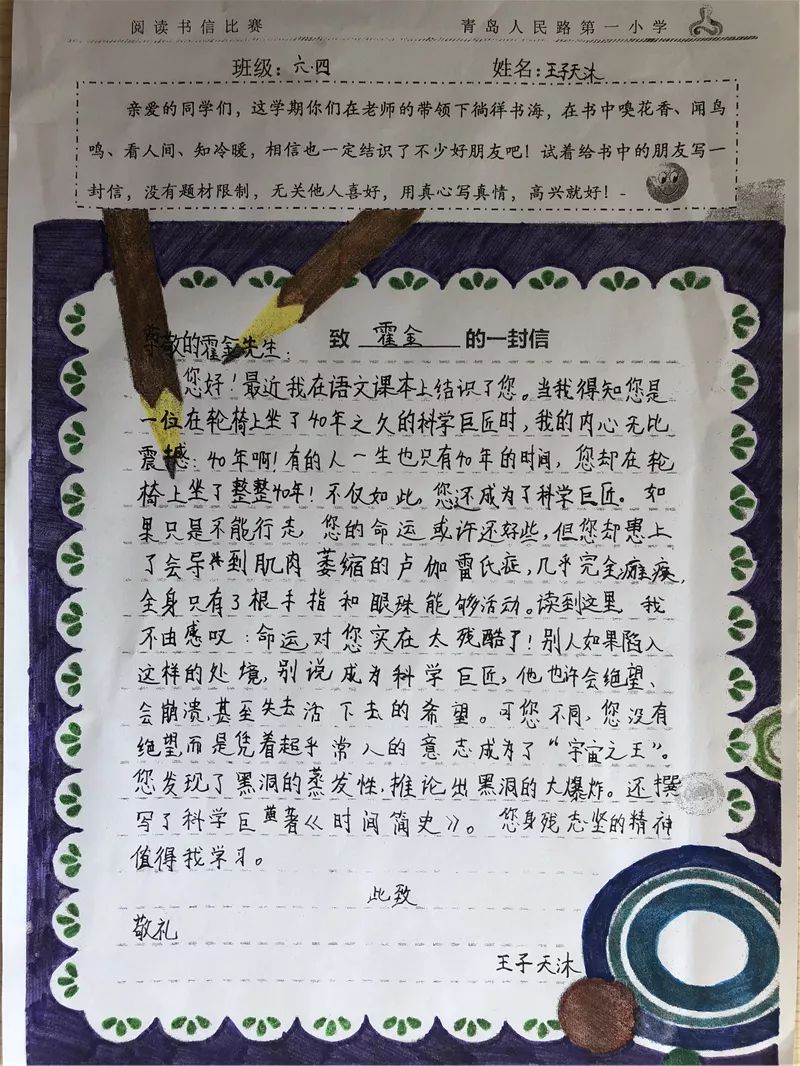 阅读书信比赛 青岛人民路第一小学
班级:六·四 姓名:王子天沐
亲爱的同学们，这学期你们在老师的带领下徜徉书海，在书中嗅花香、闻鸟
鸣、看人间、知冷暖，相信也一定结识了不少好朋友吧！试着给书中的朋友写一
封信，没有题材限制，无关他人喜好，用真心写真情，高兴就好！
致 霍金 的一封信
尊敬的霍金先生：
您好！最近我在语文课本上结识了您。当我得知您是
一位在轮椅上坐了40年之久的科学巨匠时，我的内心无比
震撼：40年啊！有的人一生也只有40年的时间，您却在轮
椅上坐了整整40年！不仅如此，您还成为了科学巨匠。如
果只是不能行走，您的命运或许还好些，但您却患上
了会导致到肌肉萎缩的卢伽雷氏症，几乎完全瘫痪，
全身只有了根手指和眼珠能够活动。读到这里，我
不由感叹：命运对您实在太残酷了！别人如果陷入
这样的处境，别说成为科学巨匠，他也许会绝望、
会崩溃，甚至失去活下去的希望。可您不同，您没有
绝望而是凭着超乎常人的意志成为了“宇宙之王”。
您发现了黑洞的蒸发性，推论出黑洞的大爆炸。还撰
写了科学巨著《时间简史》。您身残志坚的精神
值得我学习。
此致
敬礼
王子天沐